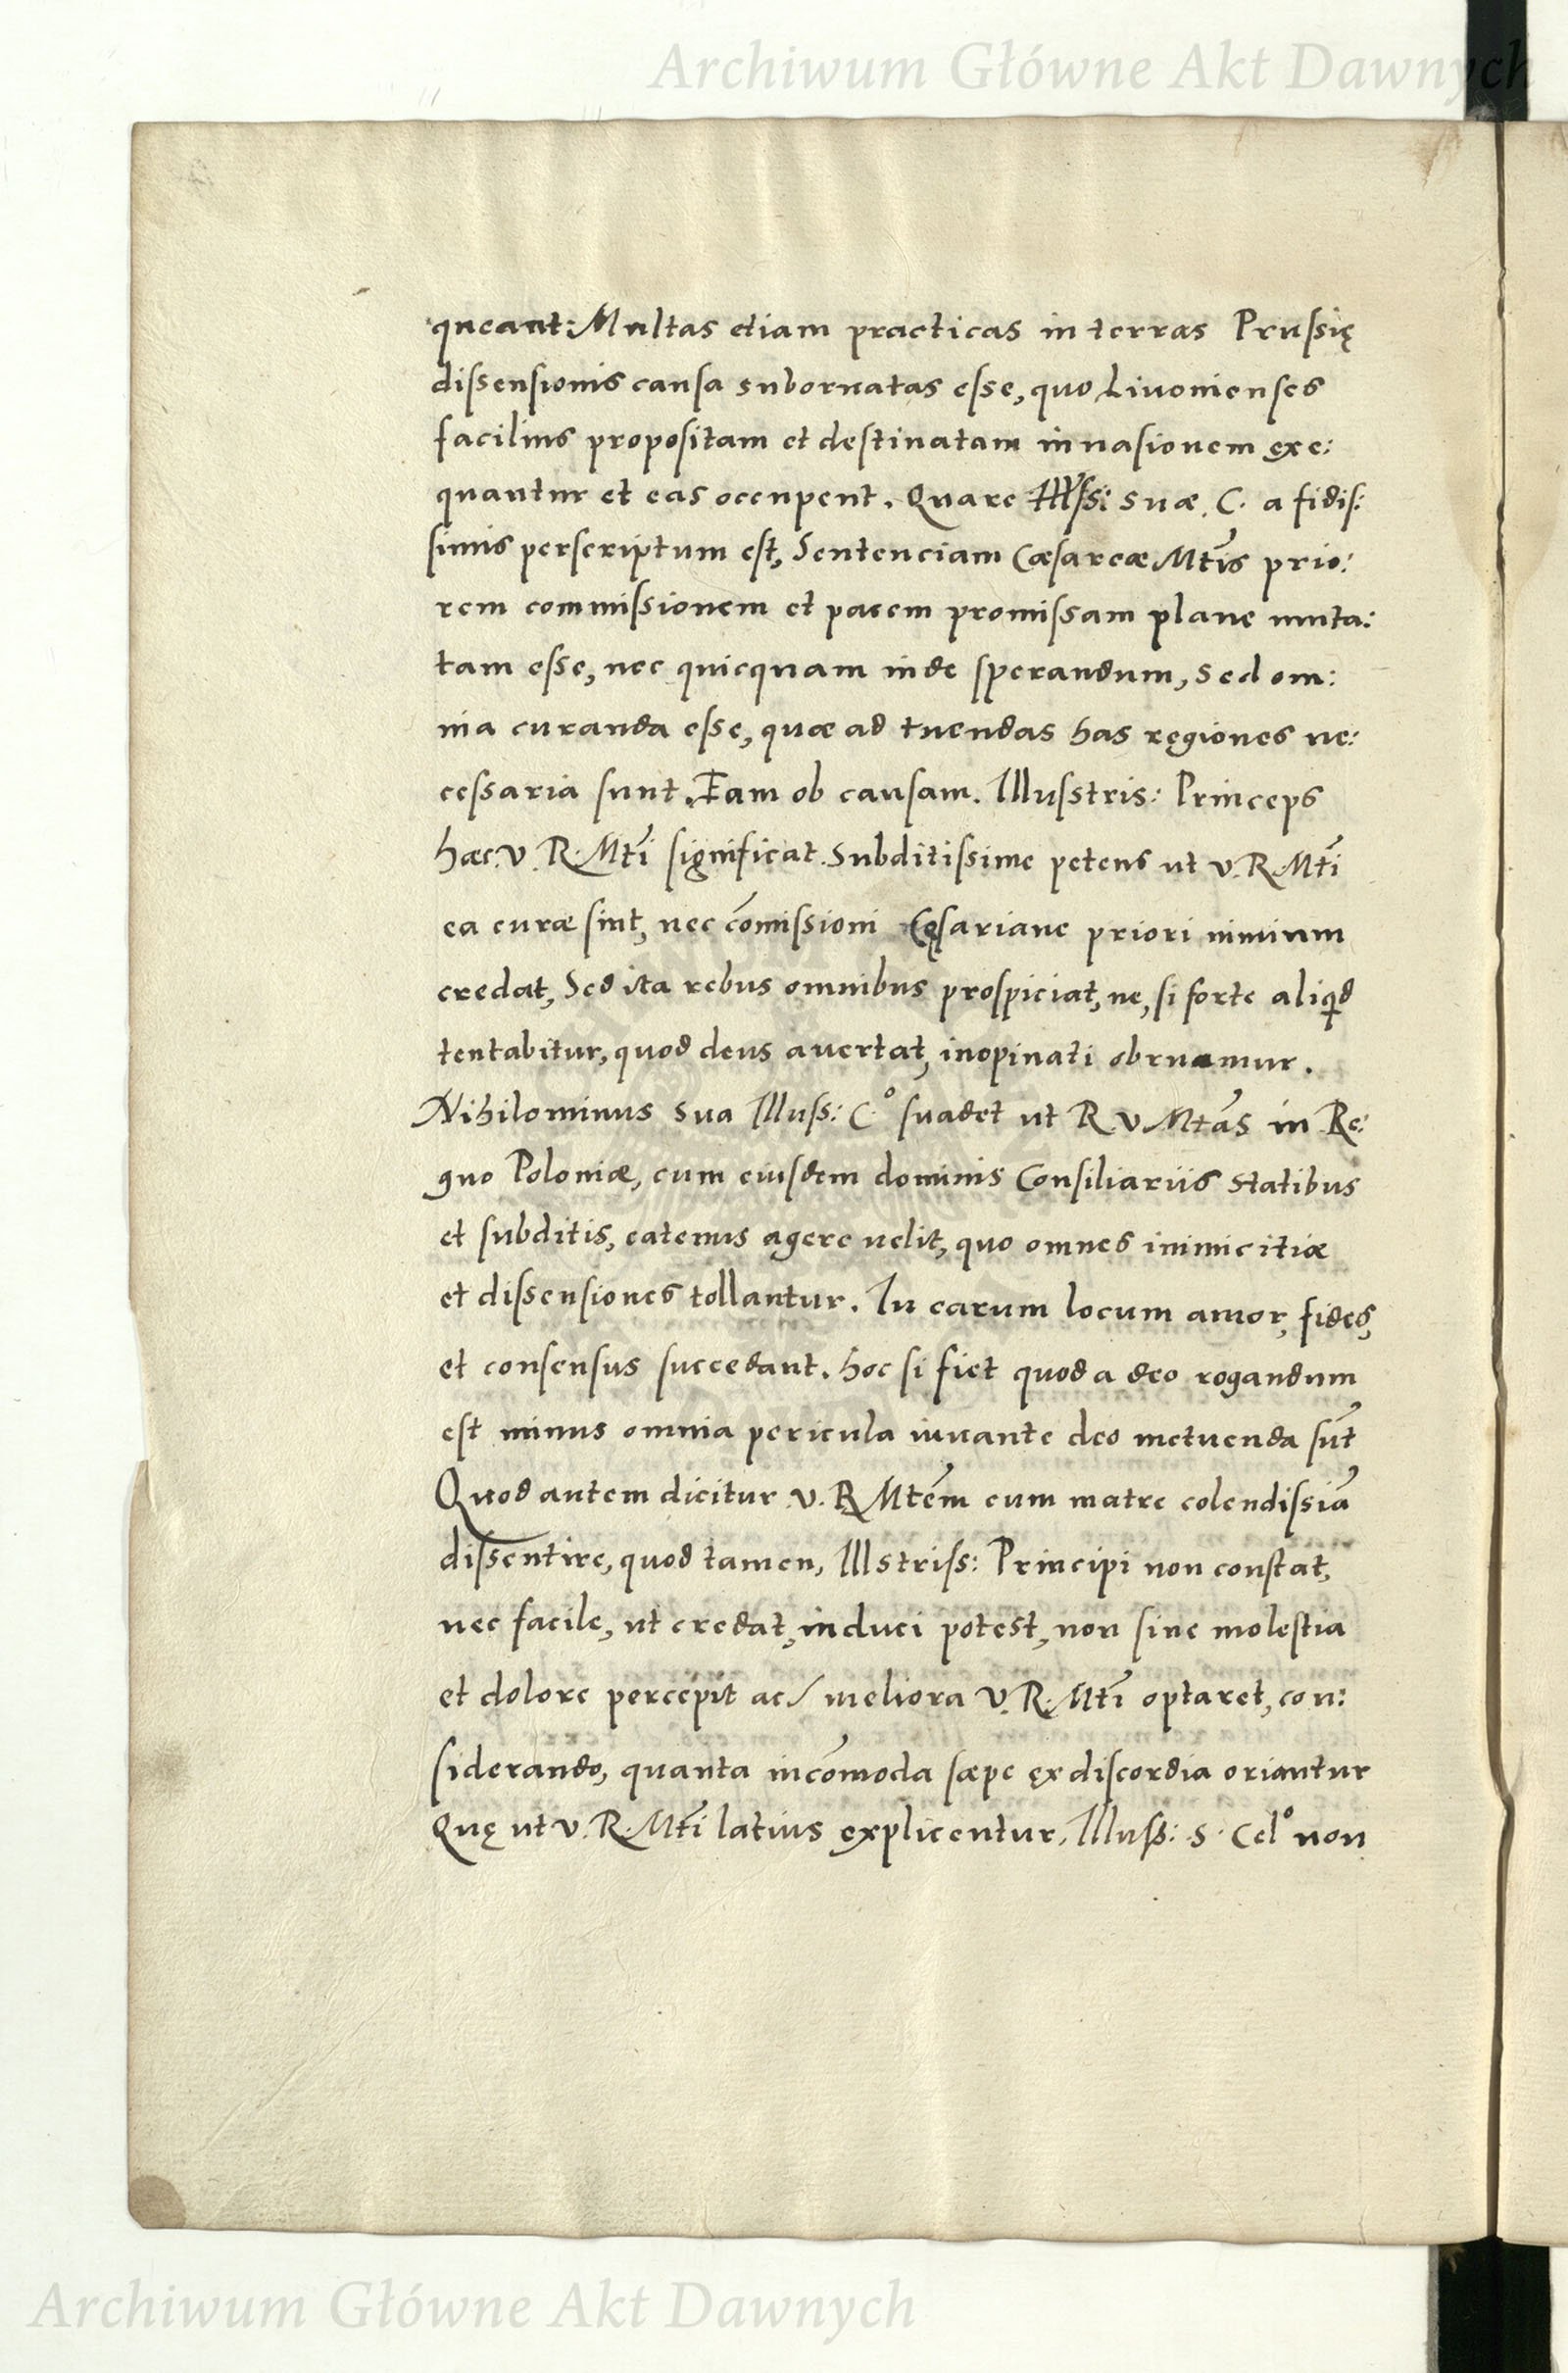 Archiwum Główne Akt Dawnych
queant: Multas etiam practicas in terras Prussię
dissensionis causa subornatas esse, quo Liuonienses
facilius propositam et destinatam inuasionem exe:
quantur et eas occupent. Quare Illss: suæ. C. a fidis:
simis perscriptum est, Sentenciam Cæsareæ Mtis prio:
rem commissionem et pacem promissam plane muta:
tam esse, nec quicquam inde sperandum, sed om:
nia curanda esse, quæ ad tuendas has regiones ne:
cessaria sunt. Eam ob causam. Illusstris: Princeps
hæc. v. R. Mti significat. Subditissime petens ut v. R Mti
ea curæ sint, nec cōmissioni Cęsariane priori nimium
credat, Sed ita rebus omnibus prospiciat, ne, si forte aliqd
tentabitur, quod deus auertat, inopinati obruamur.
Nihilominus sua Illuss: C.o suadet ut R v Mtas in Re:
gno Poloniæ, cum eiusdem dominis Consiliariis statibus
et subditis, eatenus agere uelit, quo omnes inimicitiæ
et dissensiones tollantur. In earum locum amor, fides,
et consensus succedant. hoc si fiet quod a deo rogandum
est minus omnia pericula iuuante deo metuenda sūt
Quod autem dicitur v. R Mtēm cum matre colendissiā
dissentire, quod tamen, Illstriss: Principi non constat,
nec facile, ut credat, induci potest, non sine molestia
et dolore percepit ac/ meliora v. R. Mti optaret, con:
siderando, quanta incōmoda sæpe ex discordia oriantur
Quę ut v. R. Mti latius explicentur, Illuss: S. Celo non
Archiwum Główne Akt Dawnych